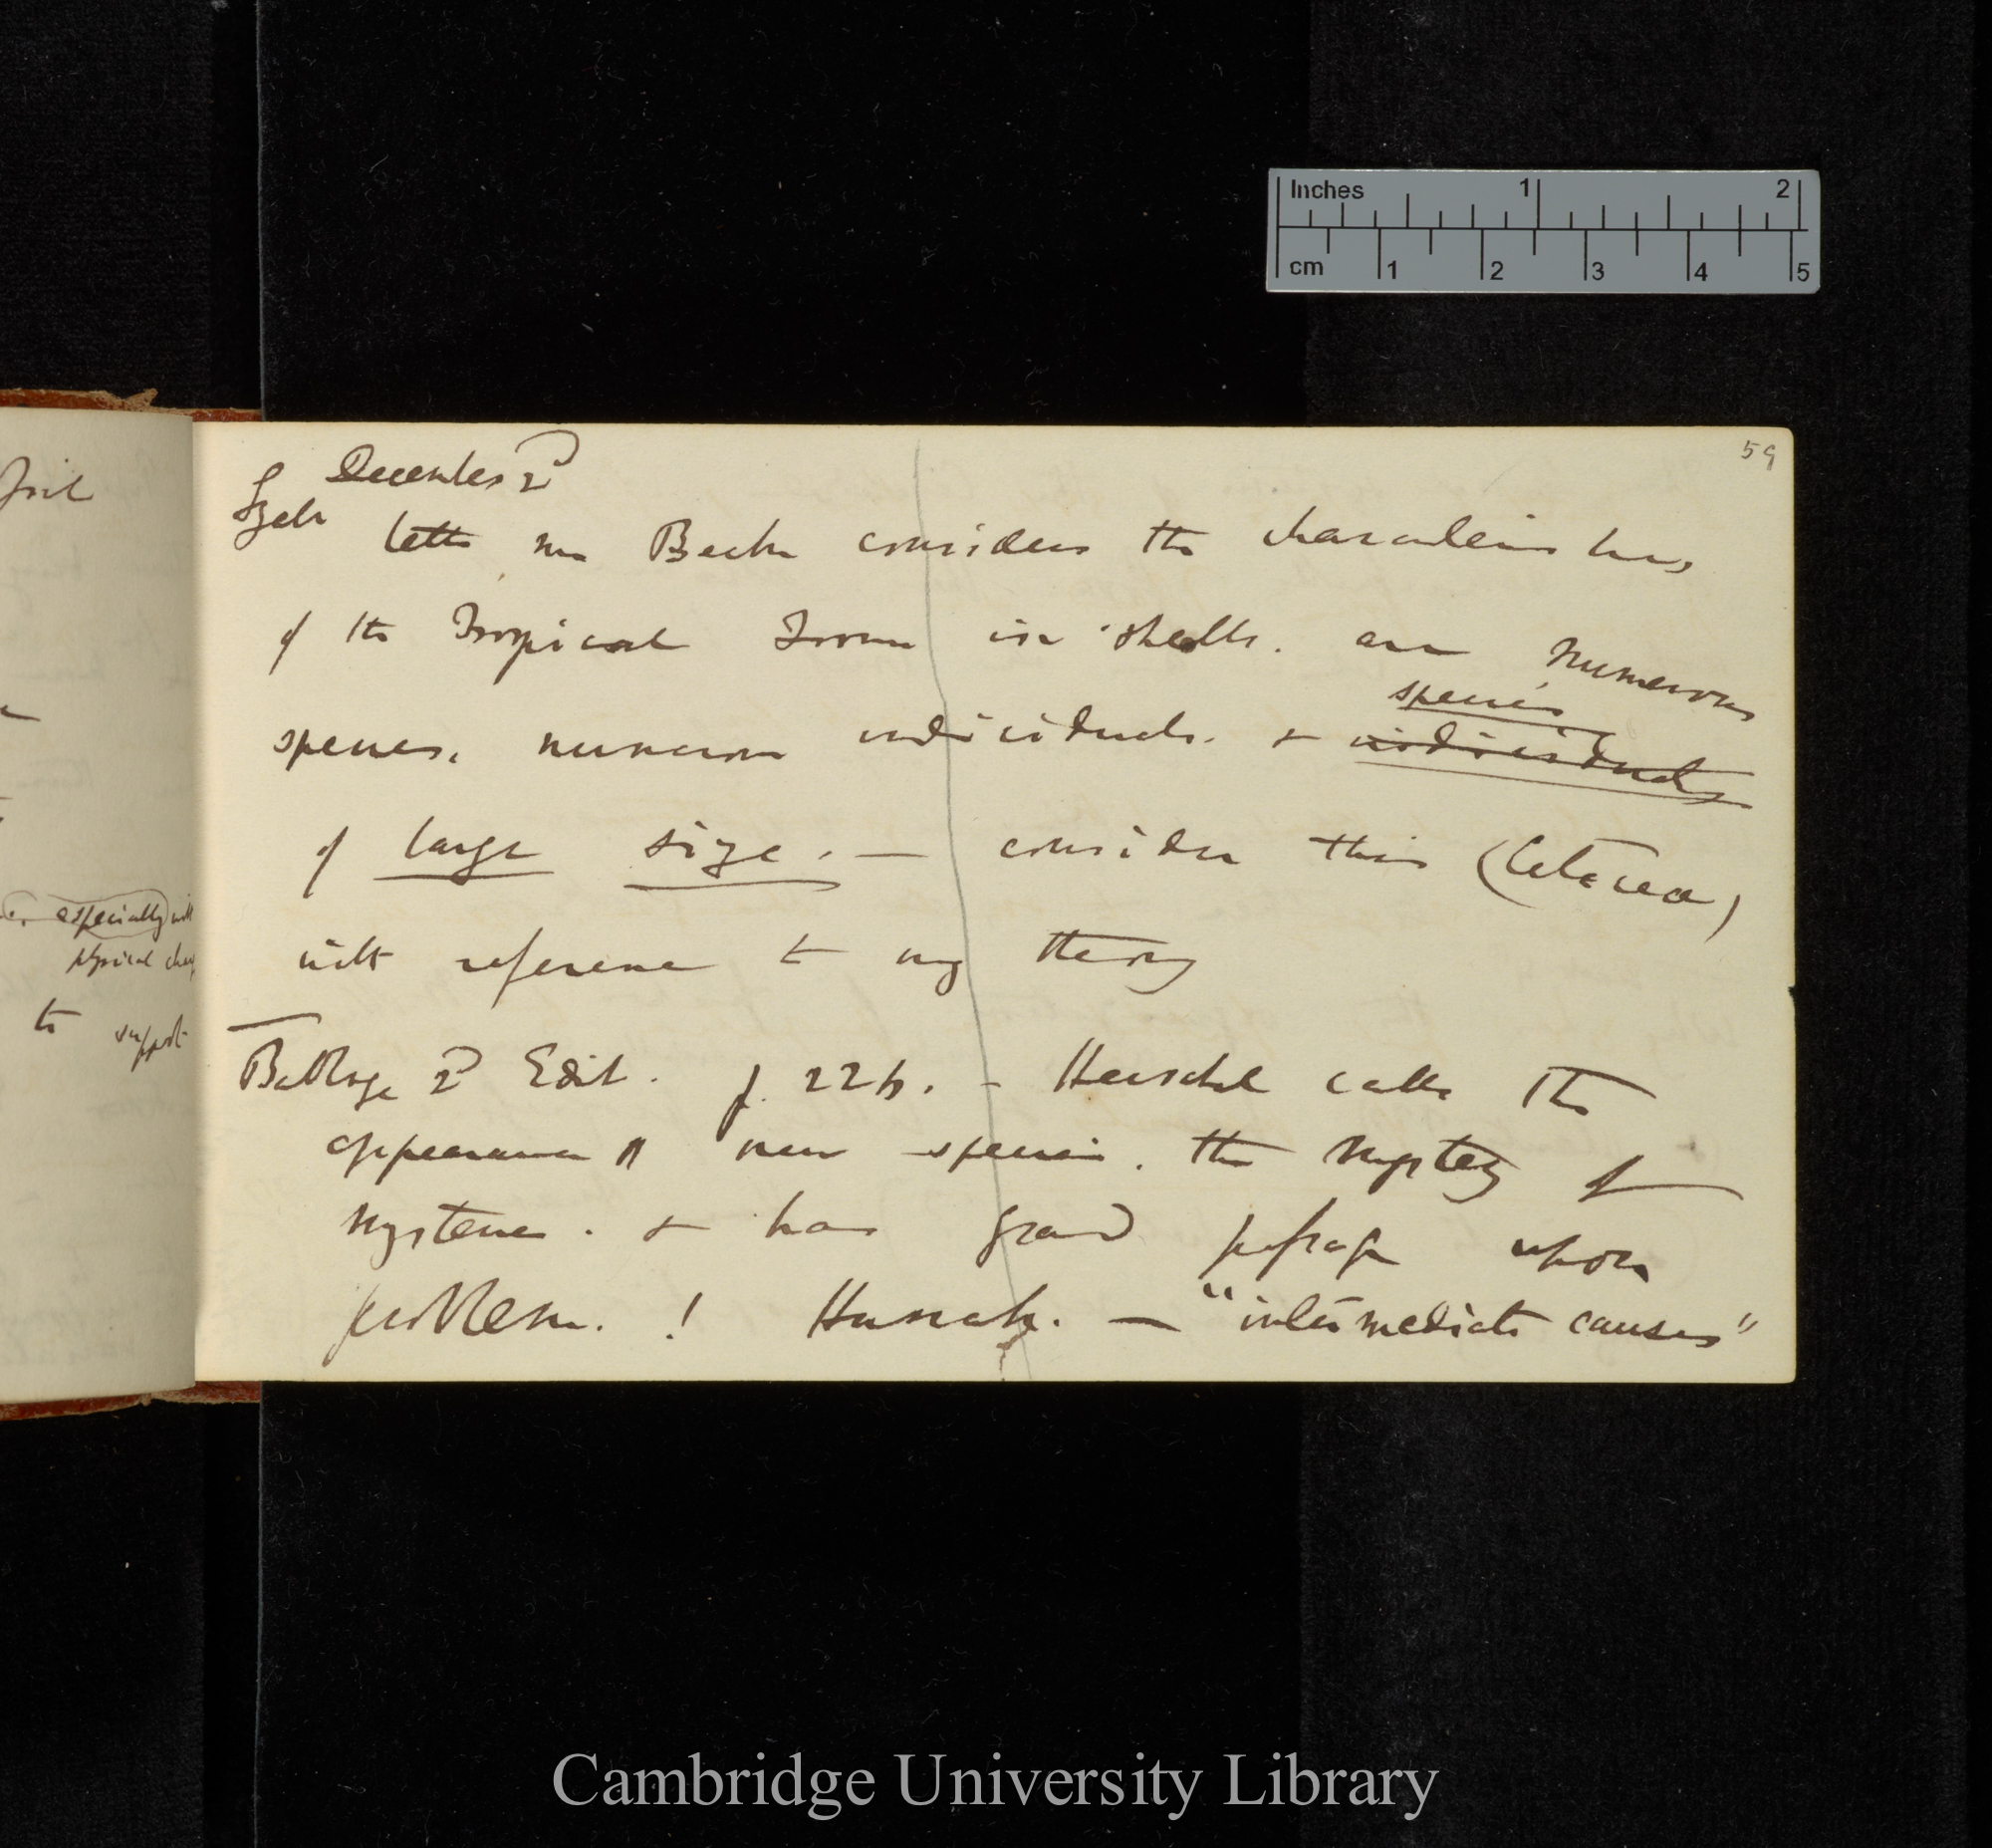 Inches 1 2
cm 1 2 3 4 5
59
December 2d
Lyell's
letter from Beck considers the characteristics
of the Tropical Forms in shells. are numerous
species
species. numerous individuals. & individuals
of large size. — consider this (Cetacea)
with reference to my theory
Babbage 2d Edit. p. 226. — Herschel calls the
appearance of new species. the mystery of
mysteries. & has grand passage upon
problem. ! Hurrah. — "intermediate causes"
especially with
physical
to support
Cambridge University Library